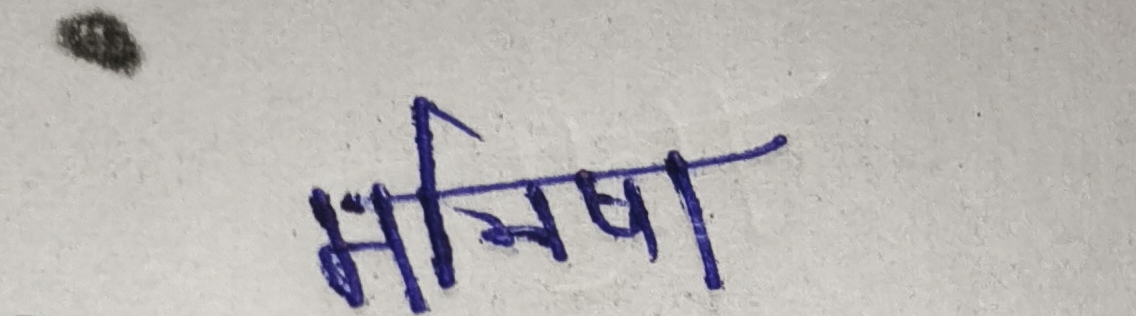 मनिषा